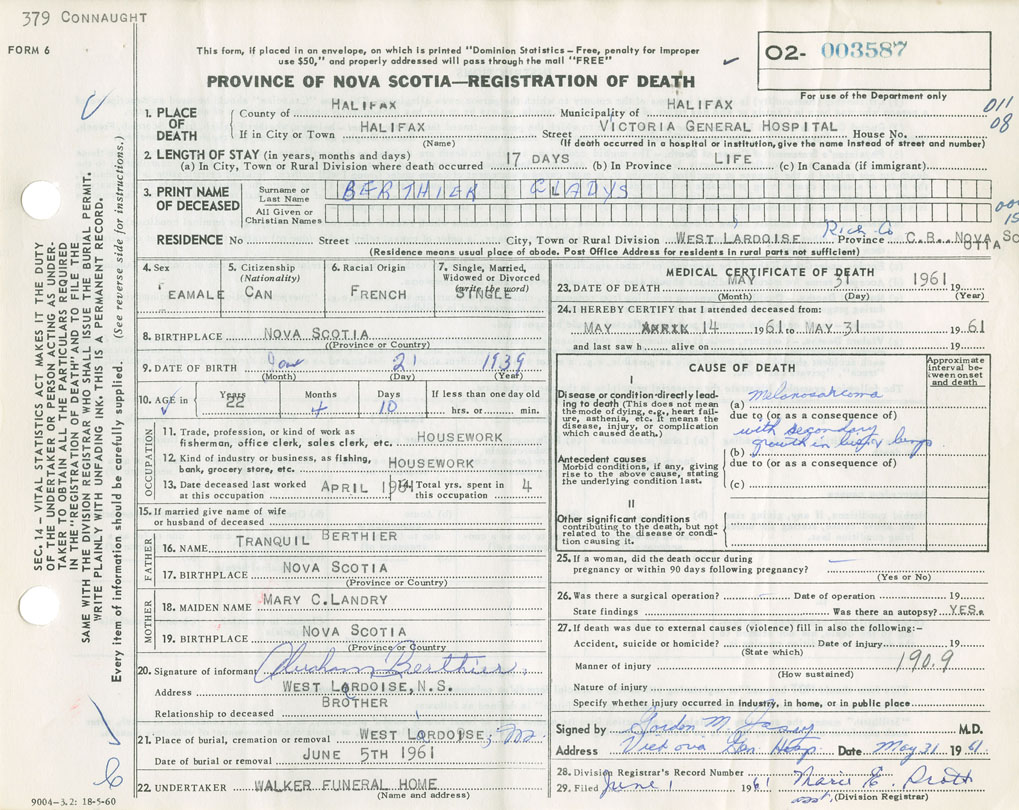 379 CONNAUGHT
FORM 6
This form, if placed in an envelope, on which is printed "Dominion Statistics – Free, penalty for improper
use $50," and properly addressed will pass through the mail "FREE"
02- 003587
For use of the Department only
PROVINCE OF NOVA SCOTIA—REGISTRATION OF DEATH
SEC. 14 – VITAL STATISTICS ACT MAKES IT THE DUTY
OF THE UNDERTAKER OR PERSON ACTING AS UNDER-
TAKER TO OBTAIN ALL THE PARTICULARS REQUIRED
IN THE "REGISTRATION OF DEATH" AND TO FILE THE
SAME WITH THE DIVISION REGISTRAR WHO SHALL ISSUE THE BURIAL PERMIT.
WRITE PLAINLY WITH UNFADING INK. THIS IS A PERMANENT RECORD.
Every item of information should be carefully supplied. (See reverse side for instructions.)
1. PLACE OF DEATH
County of HALIFAX Municipality of HALIFAX 011
If in City or Town HALIFAX Street VICTORIA GENERAL HOSPITAL House No. 08
(Name) (If death occurred in a hospital or institution, give the name instead of street and number)
2. LENGTH OF STAY (in years, months and days)
(a) In City, Town or Rural Division where death occurred 17 DAYS (b) In Province LIFE (c) In Canada (if immigrant)
3. PRINT NAME OF DECEASED
Surname or Last Name BERTHIER GLADYS
All Given or Christian Names
RESIDENCE No Street City, Town or Rural Division WEST LARDOISE Rich Co Province C.B. NOVA SCOTIA
(Residence means usual place of abode. Post Office Address for residents in rural parts not sufficient)
4. Sex FEAMALE
5. Citizenship (Nationality) CAN
6. Racial Origin FRENCH
7. Single, Married, Widowed or Divorced (write the word) SINGLE
8. BIRTHPLACE NOVA SCOTIA
(Province or Country)
9. DATE OF BIRTH Jan 21 1939
(Month) (Day) (Year)
10. AGE in Years 22 Months 4 Days 10 If less than one day old
hrs. or min.
OCCUPATION
11. Trade, profession, or kind of work as
fisherman, office clerk, sales clerk, etc. HOUSEWORK
12. Kind of industry or business, as fishing,
bank, grocery store, etc. HOUSEWORK
13. Date deceased last worked at this occupation APRIL 1961
14. Total yrs. spent in this occupation 4
15. If married give name of wife
or husband of deceased
FATHER
16. NAME TRANQUIL BERTHIER
17. BIRTHPLACE NOVA SCOTIA
(Province or Country)
MOTHER
18. MAIDEN NAME MARY C. LANDRY
19. BIRTHPLACE NOVA SCOTIA
(Province or Country)
20. Signature of informant Abraham Berthier
Address WEST LARDOISE, N.S.
Relationship to deceased BROTHER
21. Place of burial, cremation or removal WEST LARDOISE,
Date of burial or removal JUNE 5TH 1961
22. UNDERTAKER WALKER FUNERAL HOME
(Name and address)
9004-3.2: 18-5-60
MEDICAL CERTIFICATE OF DEATH
23. DATE OF DEATH MAY 31 1961
(Month) (Day) (Year)
24. I HEREBY CERTIFY that I attended deceased from:
MAY APRIL 14 1961 to MAY 31 1961
and last saw h alive on 19
CAUSE OF DEATH
Approximate interval between onset and death
I
Disease or condition directly leading to death (This does not mean the mode of dying, e.g., heart failure, asthenia, etc. It means the disease, injury, or complication which caused death.)
(a) Melanosarcoma
due to (or as a consequence of)
with secondary
growth in lungs
(b)
Antecedent causes
Morbid conditions, if any, giving rise to the above cause, stating the underlying condition last.
due to (or as a consequence of)
(c)
II
Other significant conditions
contributing to the death, but not related to the disease or condition causing it.
25. If a woman, did the death occur during
pregnancy or within 90 days following pregnancy?
(Yes or No)
26. Was there a surgical operation? Date of operation 19
State findings Was there an autopsy? YES.
27. If death was due to external causes (violence) fill in also the following:-
Accident, suicide or homicide? Date of injury 19
(State which)
Manner of injury 190.9
(How sustained)
Nature of injury
Specify whether injury occurred in industry, in home, or in public place
Signed by Gordon M. M.D.
Address Victoria Gen Hosp. Date May 31 1961.
28. Division Registrar's Record Number
29. Filed June 1 1961 Marie E.
(Division Registrar)